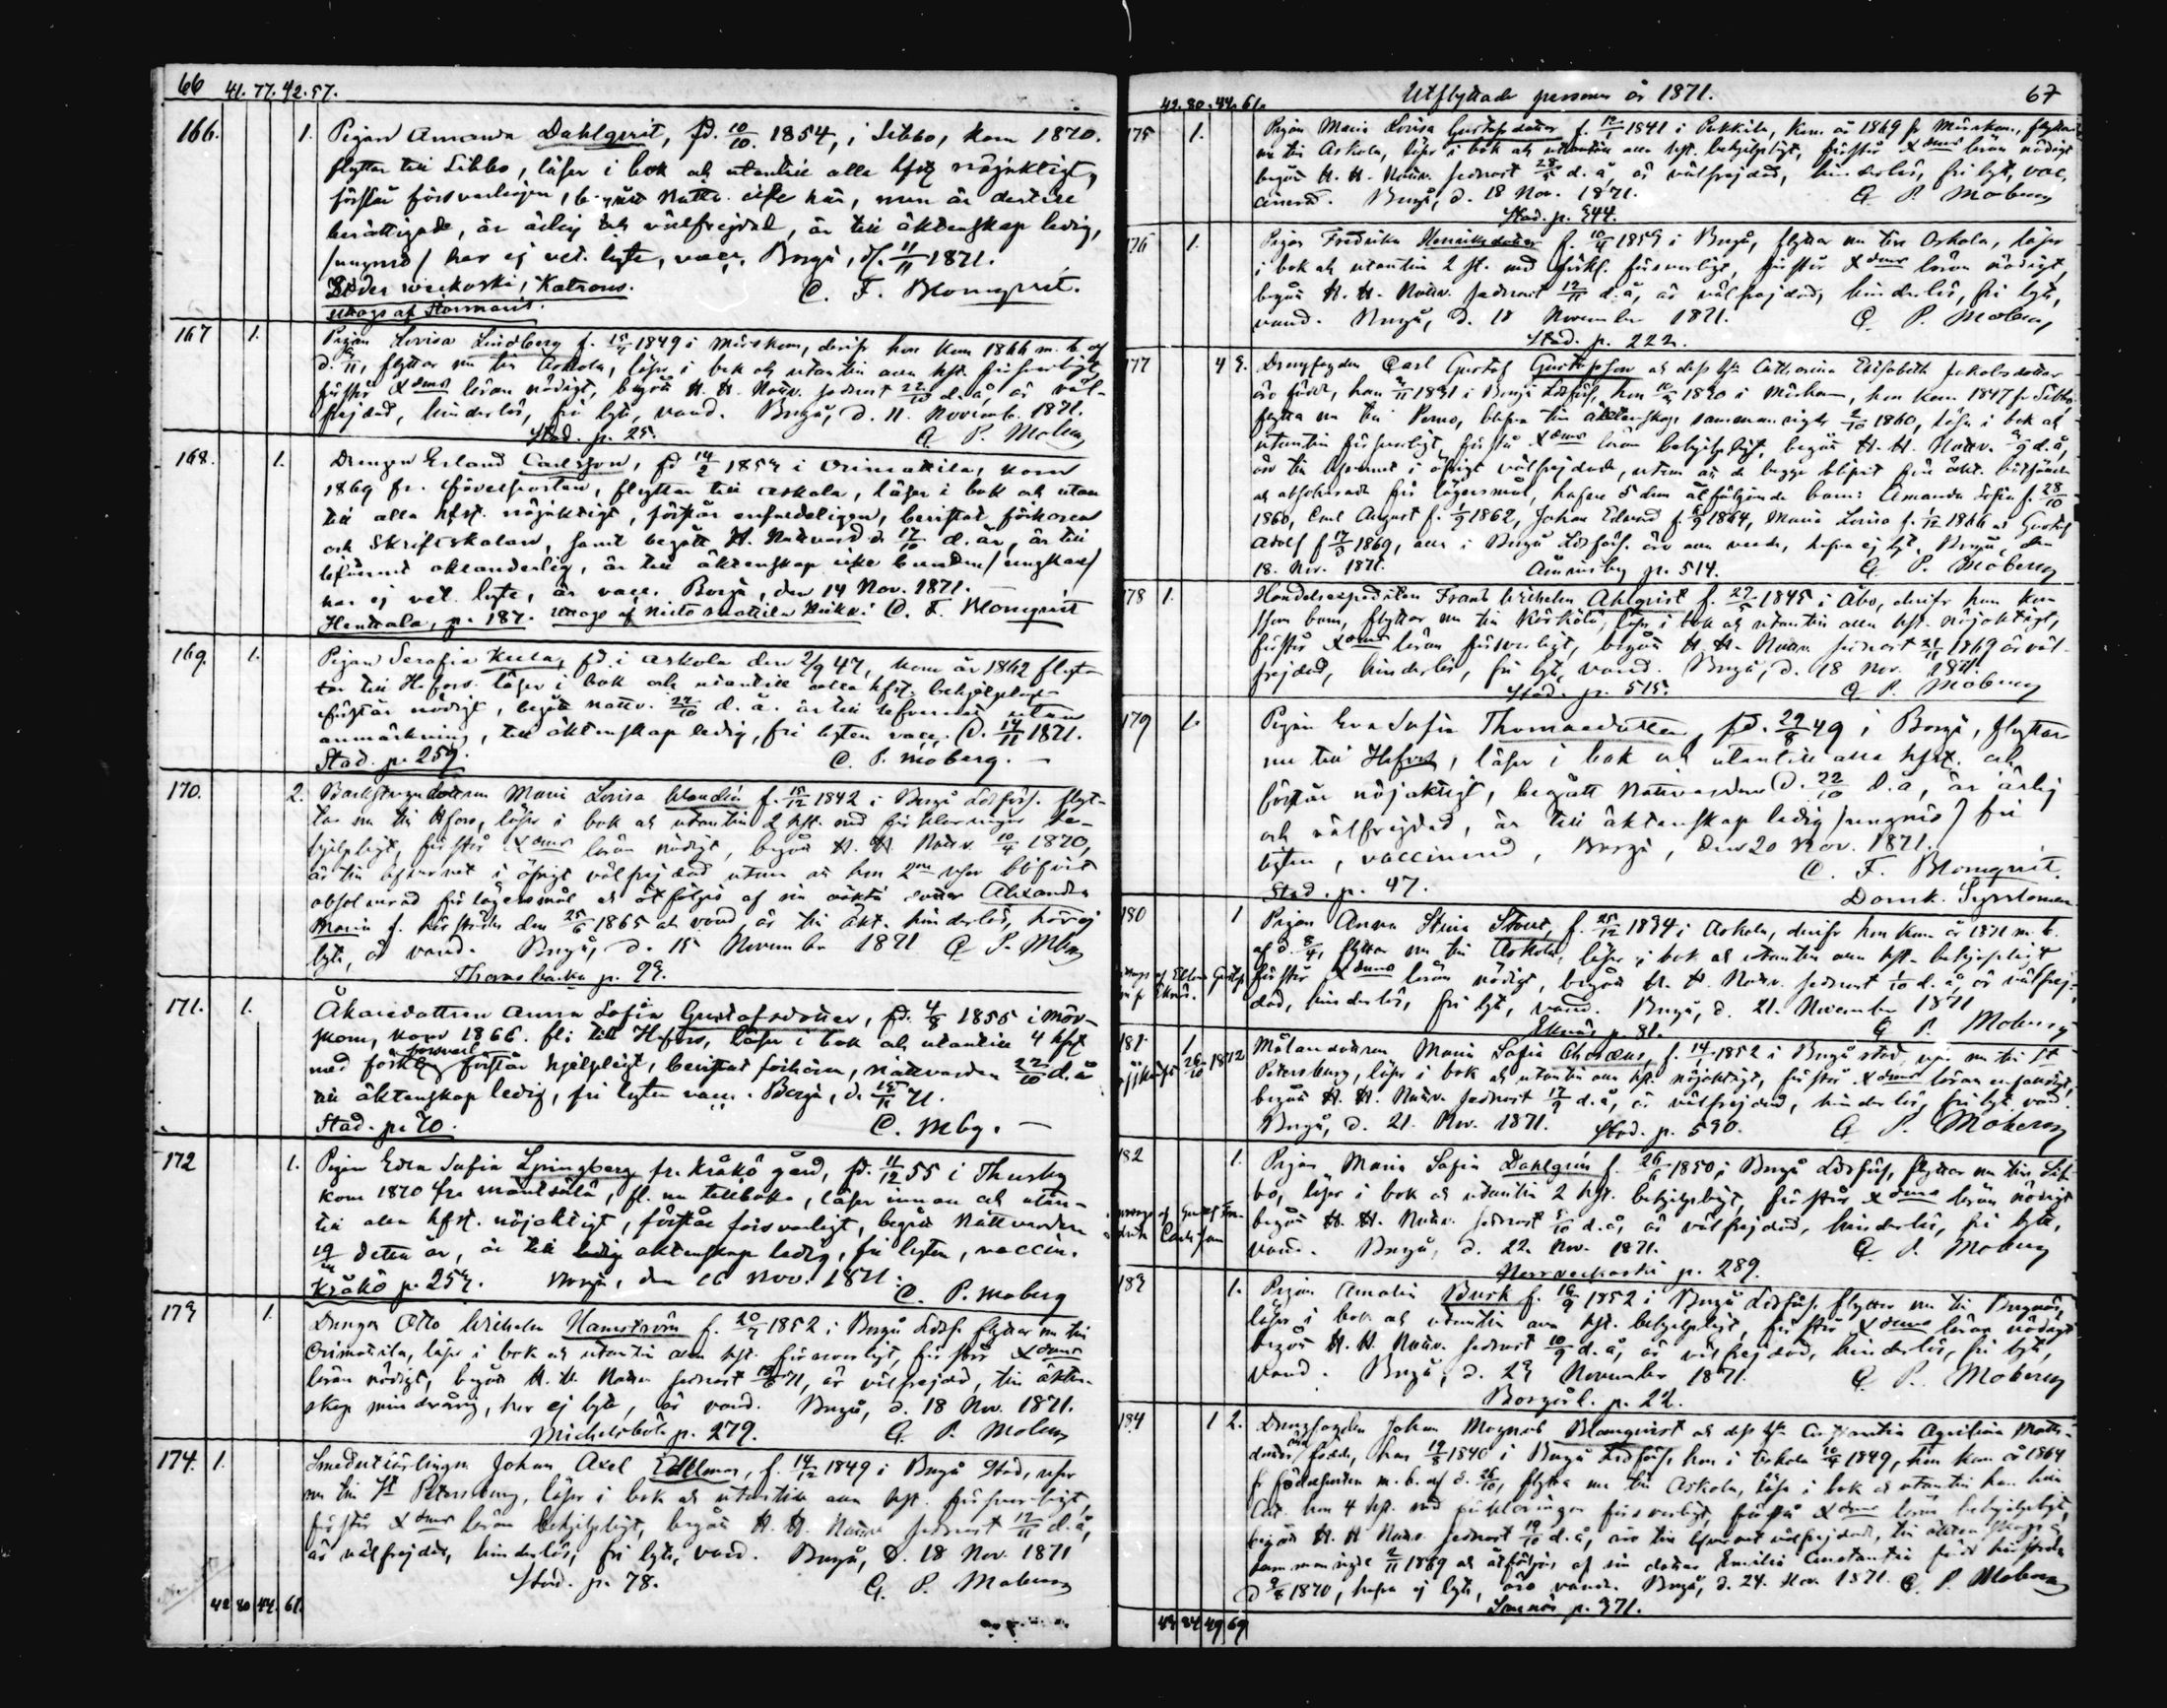 66 41. 77. 42. 57.
166. 1. Pigan Amanda Dahlqvist, fd. 10/10 1854, i Sibbo, kom 1870.
flyttar till Sibbo, läser i bok och utantill alla hfst nöjaktigt,
förstår försvarligen, nattv. icke här, men är dertill
berättigad, är ärlig och välfrejdad, är till äktenskap ledig,
/ungmö/ har ej vet. lyte, vacc. Borgå, d. 11/11 1871.
C. F. Blomqvist.
167 1. Pigan Lovisa Lindberg f. 15/4 1849 i Mörskom, derifr hon kom 1866 m. b. af
d. /11, flyttar nu till Askola, läser i bok och utantill alla hst. försvarligt,
förstår Xdoms läran nödigt, begått H. H. Nattv. sednast 22/10 d. å, är väl-
frejdad, hinderlös, fri lyte, vacc. Borgå, d. 11. Novemb. 1871.
Stad. p. 25. C. P. Moberg
168. 1. Drengen Erland Carlsson, fd 14/2 1854 i Orimattila, kom
1869 fr. , flyttar till Askola, läser i bok och utan
till alla hfst. nöjaktigt, förstår enfaldeligen, bevistat förhören
och Skriftskolan, samt begått H. Nattvard d. 17/10 d. år, är till
äktenskap icke bunden /ungkarl/
har ej vet. lyte, är vacc. Borgå, den 14 Nov. 1871.
Henttala, p. 187. C. F. Blomqvist
169. 1. Pigan Serafia Kula, fd. i Askola den 2/9 47, kom år 1862 flyt-
tar till H:fors. läser i bok och utantill alla hfst. behjelpligt
förstår nödigt, begått nattv. 22/10 d. å. är till lefvernet utan
anmärkning, till äktenskap ledig, fri lyten vacc. d. 14/11 1871.
Stad. p. 259. C. P. Moberg.
170. 2. Maria Lovisa f. 15/12 1842 i Borgå Ldsförs. flyt-
tar nu till Hfors, läser i bok och utantill 2 hst. med förklaringar be-
hjelpligt, förstår Xdoms läran nödigt, begått H. H. Nattv. 10/4 1870,
är till lefvernet i öfrigt välfrejdad utom att hon 2ne resor blifvit
absolverad för lägersmål och åtföljes af sin oäkta dotter Alexandra
Maria f. härstädes den 25/6 1865 och vacc, är till äkt. hinderlös, har ej
lyte, är vacc. Borgå, d. 15 November 1871 C. P. Mbg
p. 29.
171. 1. Åkaredottren Anna Sofia Gustafsdotter, fd. 4/8 1855 i Mör-
skom, kom 1866. fl. till Hfors, läser i bok och utantill 4 hfst
med förklar. försvarl. förstår hjelpligt, bevistat förhören, nattvarden 22/10 d. å
till äktenskap ledig, fri lyten vacc. Borgå, d. 15/11 71.
Stad. p. 70. C. Mbg.
172 1. Pigan Edla Sofia Springberg fr. Kråkö gård, fd. 11/12 55 i Thusby
kom 1870 från Mäntsälä, fl. nu tillbaka, läser innan och utan-
till alla hfst. nöjaktigt, förstår försvarligt, begått nattvarden
detta år, är till äktenskap ledig, fri lyten, vaccin.
Kråkö p. 254. Borgå, den 16 Nov. 1871. C. P. Moberg
173 1. Drengen Otto Wilhelm Hamström f. 20/7 1852 i Borgå Ldsf. flyttar nu till
Orimattila, läser i bok och utantill alla hst. försvarligt, förstår Xdoms
läran nödigt, begått H. H. Nattv. sednast 71, är välfrejdad, till äkten-
skap minderårig, har ej lyte, är vacc. Borgå, d. 18 Nov. 1871.
Mickelsböle p. 279. C. P. Moberg
174. 1. Smedslärlingen Johan Axel Edlman, f. 14/12 1849 i Borgå Stad, reser
nu till St Petersburg, läser i bok och utantill alla hst. försvarligt,
förstår Xdoms läran behjelpligt, begått H. H. Nattv. sednast 12/11 d. å,
är välfrejdad, hinderlös, fri lyte, vacc. Borgå, d. 18 Nov. 1871
Stad. p. 78. C. P. Moberg
42 80 44. 61.
42. 80. 44. 61. Utflyttade personer år 1871. 67
175 1. Pigan Maria Lovisa Gustafsdotter f. 12/ 1841 i Pukkila, kom år 1869 fr Mörskom, flyttar
nu till Askola, läser i bok och utantill alla hst. behjelpligt, förstår Xdoms läran nödigt
begått H. H. Nattv. sednast 28/5 d. å, är välfrejdad, hinderlös, fri lyt, vac.
cinerad. Borgå, d. 18 Nov. 1871. C. P. Moberg
Stad. p. 544.
176 1. Pigan Fredrika Henriksdotter f. 10/4 1859 i Borgå, flyttar nu till Askola, läser
i bok och utantill 2 st. med förkl. försvarligt, förstår Xdoms läran nödigt,
begått H. H. Nattv. sednast 12/11 d. å, är välfrejdad, hinderlös, fri lyte,
vaccd. Borgå, d. 18 November 1871. C. P. Moberg
Stad. p. 222.
177 4 3. Drengfogden Carl Gustaf Gustafsson och dess h:u Catharina Elisabeth Jakobsdotter
äro födde, han /11 1831 i Borgå Ldsförs, hon 1820 i Mörskom, hon kom 1847 fr Sibbo,
flytta nu till Perno, blefvo till äktenskap sammanvigde 2/10 1860, läsa i bok och
utantill försvarligt, förstå Xdoms läran behjelpligt, begått H. H. Nattv. d. å,
äro till lefvernet i öfrigt välfrejdade, utom att de begge blifvit
och absolverade för lägersmål, hafva 5 dem åtföljande barn: Amanda Sofia f. 28/10
1860, Carl August f. 1/9 1862, Johan Edvard f. 1864, Maria Lovisa f. 1/12 1866 och Gustaf
Adolf f 17/3 1869, alla i Borgå Ldsförs. äro alla vaccde, hafva ej lyt. Borgå, den
18. Nov. 1871. p. 514. C. P. Moberg
178 1. Handelsexpediten Frans Wilhelm Ahlqvist f. 27/5 1845 i Åbo, derifr han kom
som barn, flyttar nu till Kärkölä, läser i bok och utantill alla hst. nöjaktigt,
förstår Xdoms läran försvarligt, begått H. H. Nattv. sednast 21/11 1869 är väl-
frejdad, hinderlös, fri lyt, vaccd. Borgå, d. 18 Nov. 1871.
Stad. p. 515. C. P. Moberg
179 1. Pigan Eva Sofia Thomasdotter, fd. 29/8 49 i Borgå, flyttar
nu till Hfors, läser i bok och utantill alla hfst. och
förstår nöjaktigt, begått Nattvarden d. 22/10 d. å, är ärlig
och välfrejdad, är till äktenskap ledig /ungmö/ fri
lyten, vaccinerad, Borgå, den 20 Nov. 1871.
C. F. Blomqvist.
Stad. p. 47. Domk. Syssloman.
180 1 Pigan Anna Stina f. 25/12 1834 i Askola, derifr hon kom år 1871 m. b.
af d. 8/4, flyttar nu till Askola, läser i bok och utantill alla hst. behjelpligt
förstår Xdoms läran nödigt, begått H. H. Nattv. sednast 1/10 d. å, är välfrej-
dad, hinderlös, fri lyt, vaccd. Borgå, d. 21. November 1871
p. 81. C. P. Moberg
181. 1 Maria Sofia f. 14/1 1852 i Borgå stad, reser nu till St
Petersburg, läser i bok och utantill alla hst. nöjaktigt, förstår Xdoms läran
begått H. H. Nattv. sednast 17/9 d. å, är välfrejdad, hinderlös, fri lyt. vacc
Borgå, d. 21. Nov. 1871. Stad. p. 530. C. P. Moberg
182 1. Pigan Maria Sofia Dahlgrén f. 26/ 1850 i Borgå Ldsförs, flyttar nu till Sib-
bo, läser i bok och utantill 2 hst. behjelpligt, förstår Xdoms läran nödigt
begått H. H. Nattv. sednast d. å, är välfrejdad, hinderlös, fri lyte,
vaccd. Borgå, d. 22. Nov. 1871. C. P. Moberg
p. 289.
183 1. Pigan Amalia Busk f. 16/9 1852 i Borgå Ldsförs. flyttar nu till
läser i bok och utantill alla hst. behjelpligt, förstår Xdoms läran nödigt
begått H. H. Nattv. sednast 10/9 d. å, är välfrejdad, hinderlös, fri lyt,
vaccd. Borgå, d. 23 November 1871. C. P. Moberg
p. 22.
184 1 2. Drengfogden Johan Magnus Blomqvist och dess h:u
äro födde, han 19/8 1840 i Borgå Ldsförs, hon i Askola 1849, hon kom år 1864
m. b. af d. 26/10, flytta nu till Askola, läsa i bok och utantill han
hon 4 hst. med förklaringar försvarligt, förstå Xdoms läran behjelpligt,
begått H. H. Nattv. sednast 19/10 d. å, äro till lefvernet välfrejdade, till äktenskap
sammanvigde 2/11 1869 och åtföljas af sin dotter Emilia Constantia född härstädes
d 1870, hafva ej lyte, äro vaccde. Borgå, d. 24. Nov. 1871. C. P. Moberg
p. 371.
43 84 49 69